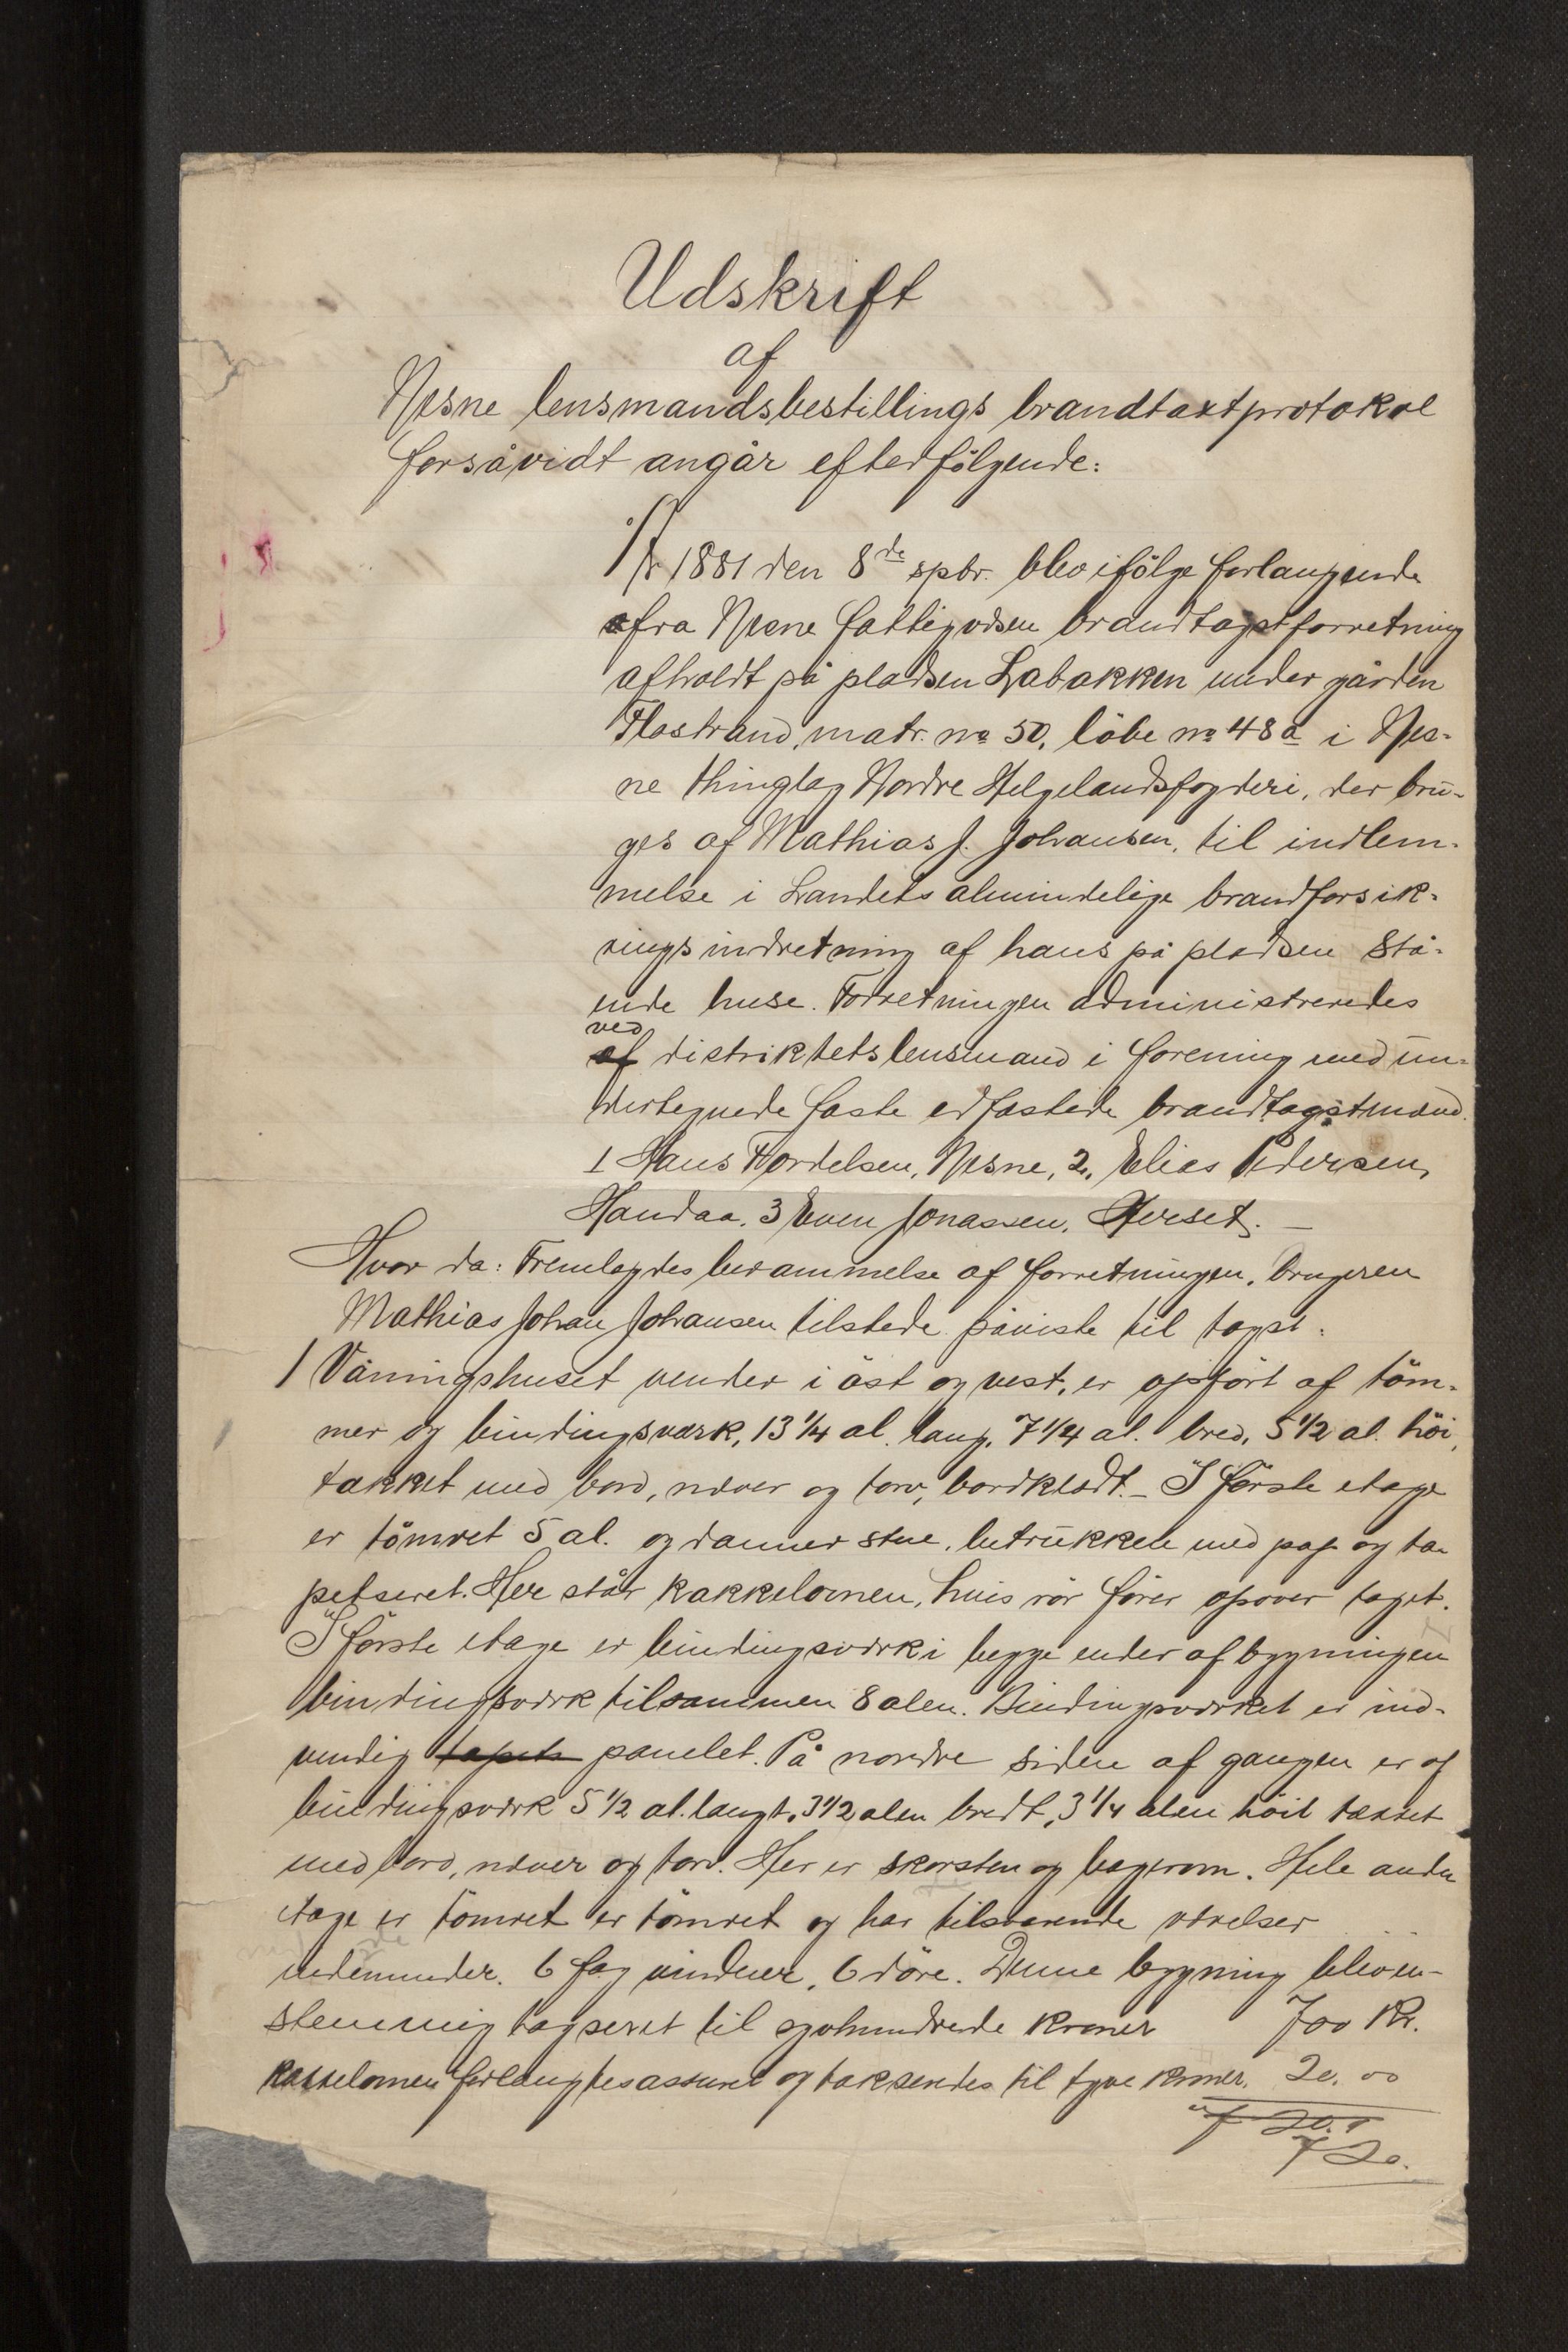 Udskrift
af
Nesne lensmandsbestillings brandtaxtprotokol
forsåvidt angår efterfölgende:
År 1881 den 8de spbr. blev ifölge forlangende
fra Nesne fattigvæsen brandtagstforretning
afholdt på pladsen Labakken under gården
Flostrand, matr. no 50, löbe no 48a i Nes-
ne thinglag Nordre Helgelandsfogderi, der bru-
ges af Mathias J. Johansen, til indlem-
melse i Landets almindelige brandforsik-
ringsindretning af hans på pladsen stå-
ende huse. Forretningen administreredes
ved
af distriktets lensmand i forening med un-
dertegnede faste edfæstede brandtagstmænd.
1 Hans Fordelsen, Nesne, 2, Elias Pedersen,
Handaa. 3 Even Jonassen, Herset. —
Hvor da: Fremlagdes berammelse af forretningen. Brugeren
Mathias Johan Johansen tilstede påviste til tagst:
1 Våningshuset vender i öst og vest, er opfört af töm-
mer og bindingsværk, 13 1/4 al. lang, 7 1/4 al. bred, 5 1/2 al. höi,
tækket med bord, næver og torv, bordklædt. – I förste etage
er tömret 5 al. og danner stue, betrukken med pap og ta-
petseret. Her står kakkelovnen, hvis rör förer opover taget.
I förste etage er bindingsværk i begge ender af bygningen
bindingsværk tilsammen 8 alen. Bindingsværket er ind-
vendig tapets panelet. På nordre siden af gangen er af
bindingsværk 5 1/2 al. langt, 3 1/2 alen bredt, 3 1/4 alen höit tækket
med bord, næver og torv. Her er skorsten og bagerom. Hele anden
etage er tömret er tömret og har tilsvarende værelser
nedenunder. 6 fag vinduer, 6 döre. Denne bygning blev en-
stemmig tagseret til syvhundrede kroner 700 Kr.
Kakkelovnen forlangtes assureret og taksertes til tyve kroner. 20. 00
720.
720.